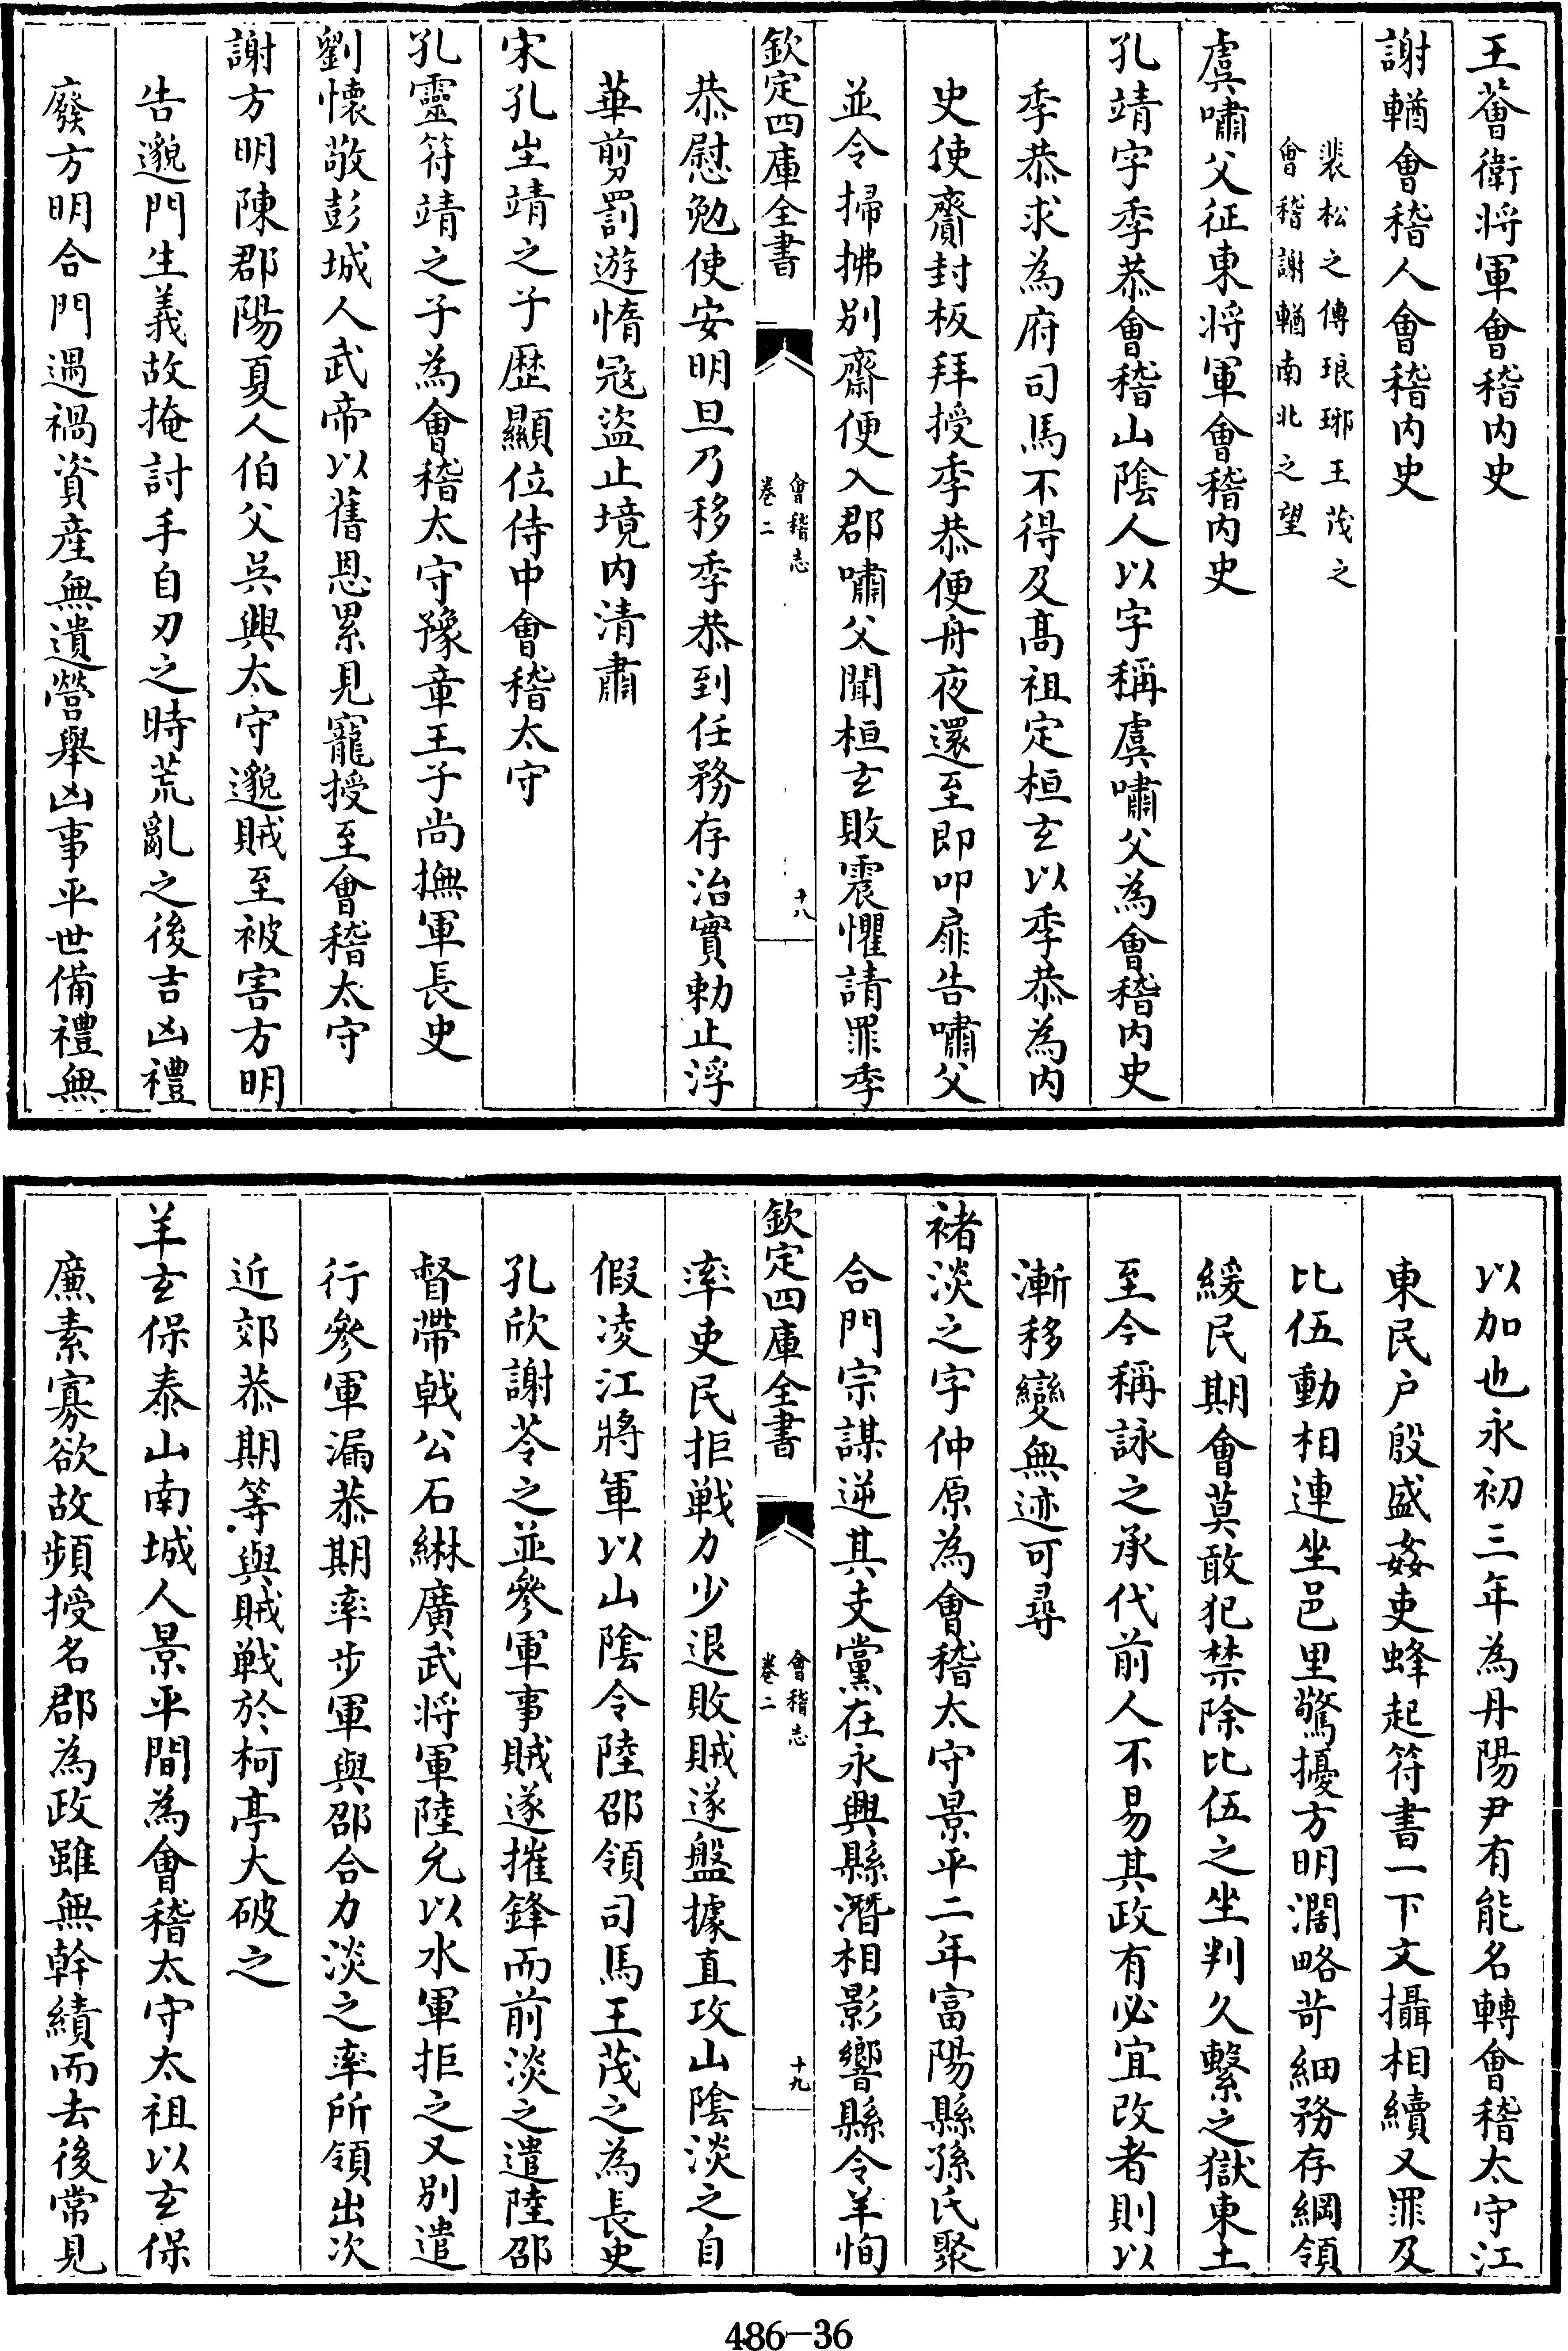 王薈衛将軍會稽内史
謝輶會稽人會稽内史
裴松之傳琅琊王茂之
會稽謝輶南北之望
虞嘯父征東将軍會稽内史
孔靖字季恭會稽山隂人以字稱虞嘯父為會稽内史
季恭求為府司馬不得及髙祖定桓玄以季恭為内
史使齎封板拜授季恭便舟夜還至即叩扉告嘯父
並令掃拂别齋便入郡嘯父聞桓玄敗震懼請罪季
欽定四庫全書
會稽志
卷二
十八
恭慰勉使安明旦乃移季恭到任務存治實勅止浮
華剪罰遊惰寇盜止境内清肅
宋孔𡊮靖之子歴顯位侍中會稽太守
孔靈符靖之子為會稽太守豫章王子尚撫軍長史
劉懷敬彭城人武帝以舊恩累見寵授至會稽太守
謝方明陳郡陽夏人伯父呉興太守邈賊至被害方明
告邈門生義故掩討手自刃之時荒亂之後吉凶禮
廢方明合門遇禍資産無遺營舉凶事平世備禮無
以加也永初三年為丹陽尹有能名轉會稽太守江
東民户殷盛姦吏蜂起符書一下文攝相續又罪及
比伍動相連坐邑里驚擾方明濶略苛細務存綱領
緩民期會莫敢犯禁除比伍之坐判久繫之獄東土
至今稱詠之承代前人不易其政有必宜改者則以
漸移變無迹可尋
褚淡之字仲原為會稽太守景平二年富陽縣孫氏聚
合門宗謀逆其支黨在永興縣潛相影響縣令羊恂
欽定四庫全書
會稽志
卷二
十九
率吏民拒戰力少退敗賊遂盤據直攻山隂淡之自
假凌江將軍以山隂令陸邵領司馬王茂之為長史
孔欣謝苓之並參軍事賊遂摧鋒而前淡之遣陸邵
督帶戟公石綝廣武将軍陸允以水軍拒之又别遣
行參軍漏恭期率步軍與邵合力淡之率所領出次
近郊恭期等與賊戰於柯亭大破之
羊玄保泰山南城人景平間為會稽太守太祖以玄保
廉素寡欲故頻授名郡為政雖無幹績而去後常見
486-36